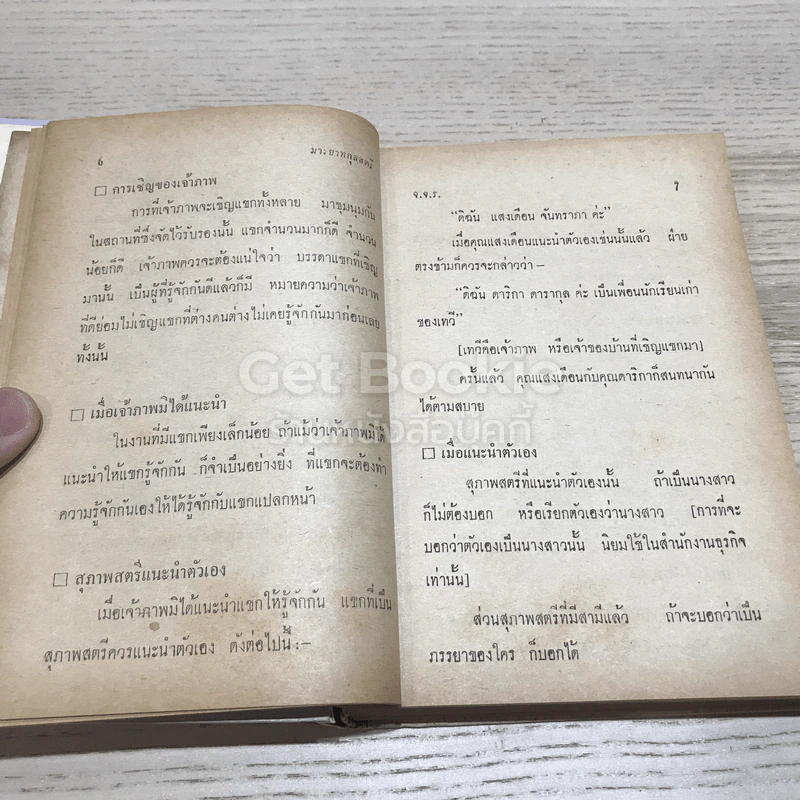 6
มารยาทกุลสตรี
□ การเชิญของเจ้าภาพ
การที่เจ้าภาพจะเชิญแขกทั้งหลาย มาชุมนุมกัน
ในสถานที่ซึ่งจัดไว้รับรองนั้น แขกจำนวนมากก็ดี จำนวน
น้อยก็ดี เจ้าภาพควรจะต้องแน่ใจว่า บรรดาแขกที่เชิญ
มานั้น เป็นผู้ที่รู้จักกันดีแล้วก็มี หมายความว่าเจ้าภาพ
ที่ดีย่อมไม่เชิญแขกที่ต่างคนต่างไม่เคยรู้จักกันมาก่อนเลย
ทั้งนั้น
□ เมื่อเจ้าภาพมิได้แนะนำ
ในงานที่มีแขกเพียงเล็กน้อย ถ้าแม้ว่าเจ้าภาพมิได้
แนะนำให้แขกรู้จักกัน ก็จำเป็นอย่างยิ่ง ที่แขกจะต้องทำ
ความรู้จักกันเองให้ได้รู้จักกับแขกแปลกหน้า
□ สุภาพสตรีแนะนำตัวเอง
เมื่อเจ้าภาพมิได้แนะนำแขกให้รู้จักกัน แขกที่เป็น
สุภาพสตรีควรแนะนำตัวเอง ดังต่อไปนี้:—
จ.จ.ร.
7
“ดิฉัน แสงเดือน จันทราภา ค่ะ”
เมื่อคุณแสงเดือนแนะนำตัวเองเช่นนั้นแล้ว ฝ่าย
ตรงข้ามก็ควรจะกล่าวว่า—
“ดิฉัน ดาริกา ดารากุล ค่ะ เป็นเพื่อนนักเรียนเก่า
ของเทวี”
[เทวีคือเจ้าภาพ หรือเจ้าของบ้านที่เชิญแขกมา]
ครั้นแล้ว คุณแสงเดือนกับคุณดาริกาก็สนทนากัน
ได้ตามสบาย
□ เมื่อแนะนำตัวเอง
สุภาพสตรีที่แนะนำตัวเองนั้น ถ้าเป็นนางสาว
ก็ไม่ต้องบอก หรือเรียกตัวเองว่านางสาว [การที่จะ
บอกว่าตัวเองเป็นนางสาวนั้น นิยมใช้ในสำนักงานธุรกิจ
เท่านั้น]
ส่วนสุภาพสตรีที่มีสามีแล้ว ถ้าจะบอกว่าเป็น
ภรรยาของใคร ก็บอกได้
Get Bookie
ร้านหนังสือนิคกี้